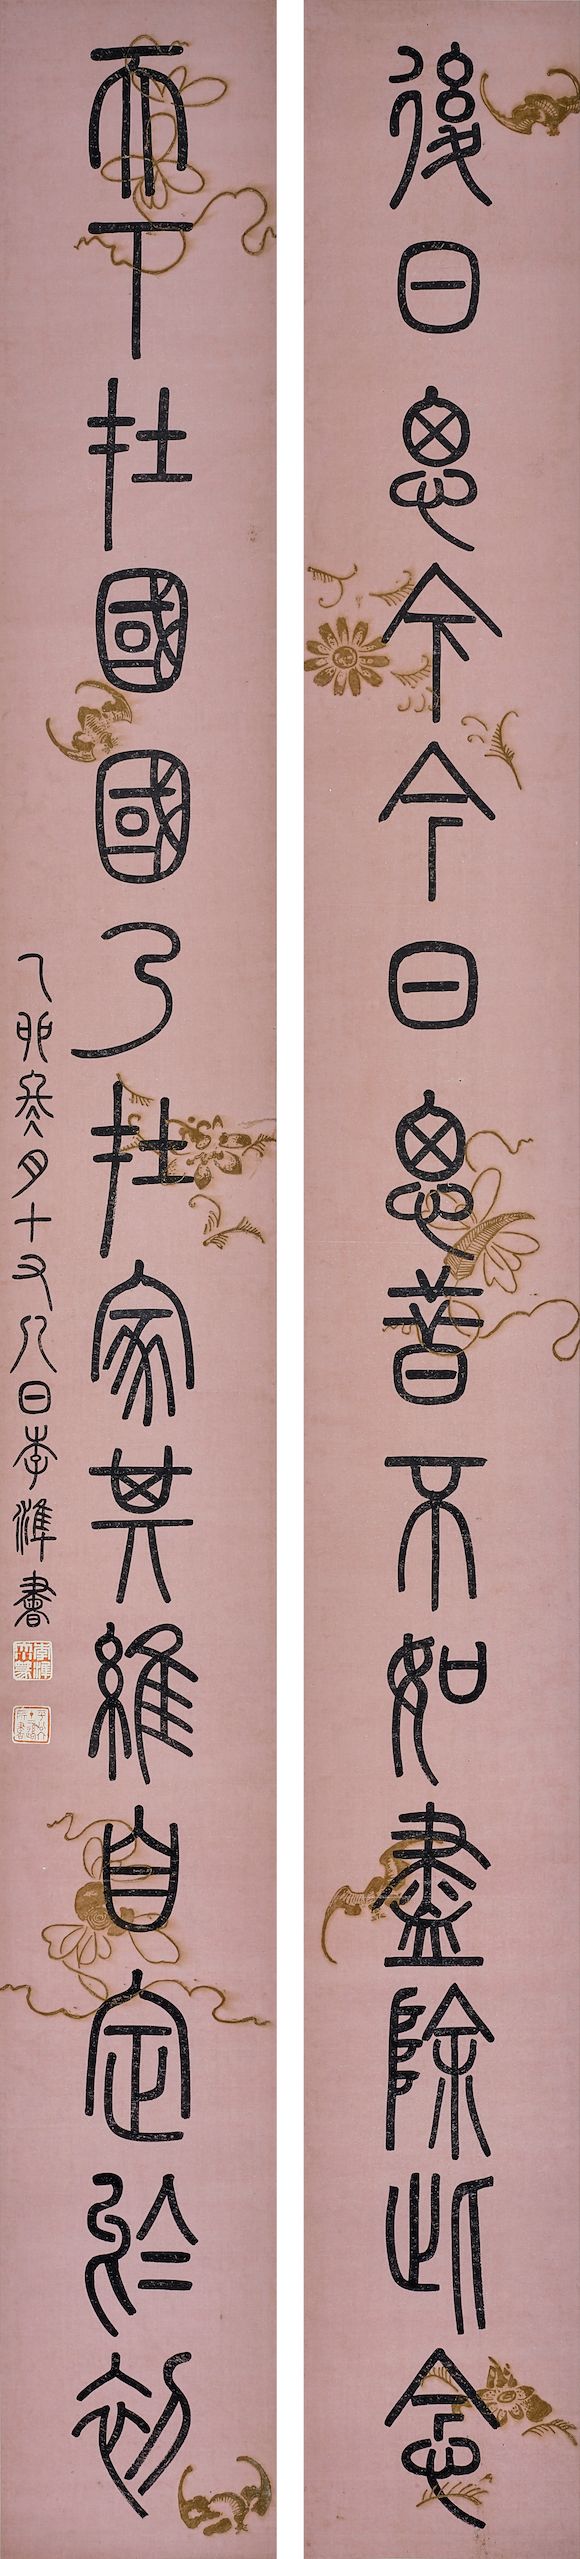 後日思今今日思昔不如盡除此念
天下在國國乃在家其維自定於初
乙卯月十又八日李準書